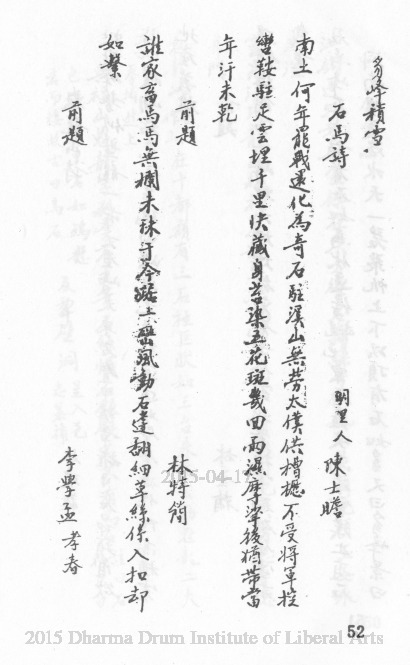 多峰積雪
石馬詩
明里人 陳士瞻
南土何年罷戰還化為奇石駐溪山無勞太僕供槽櫪不受將軍控
鞍駐足雲埋千里快藏身苔染五花斑幾回雨濕摩挲後猶帶當
年汗未乾
前題
林特簡
誰家畜馬馬無欄未秣于今踞上磐風動石邊翻細草絲絲係入扣却
如繫
前題
李學孟孝春
2015-04-17
52
2015 Dharma Drum Institute of Liberal Arts